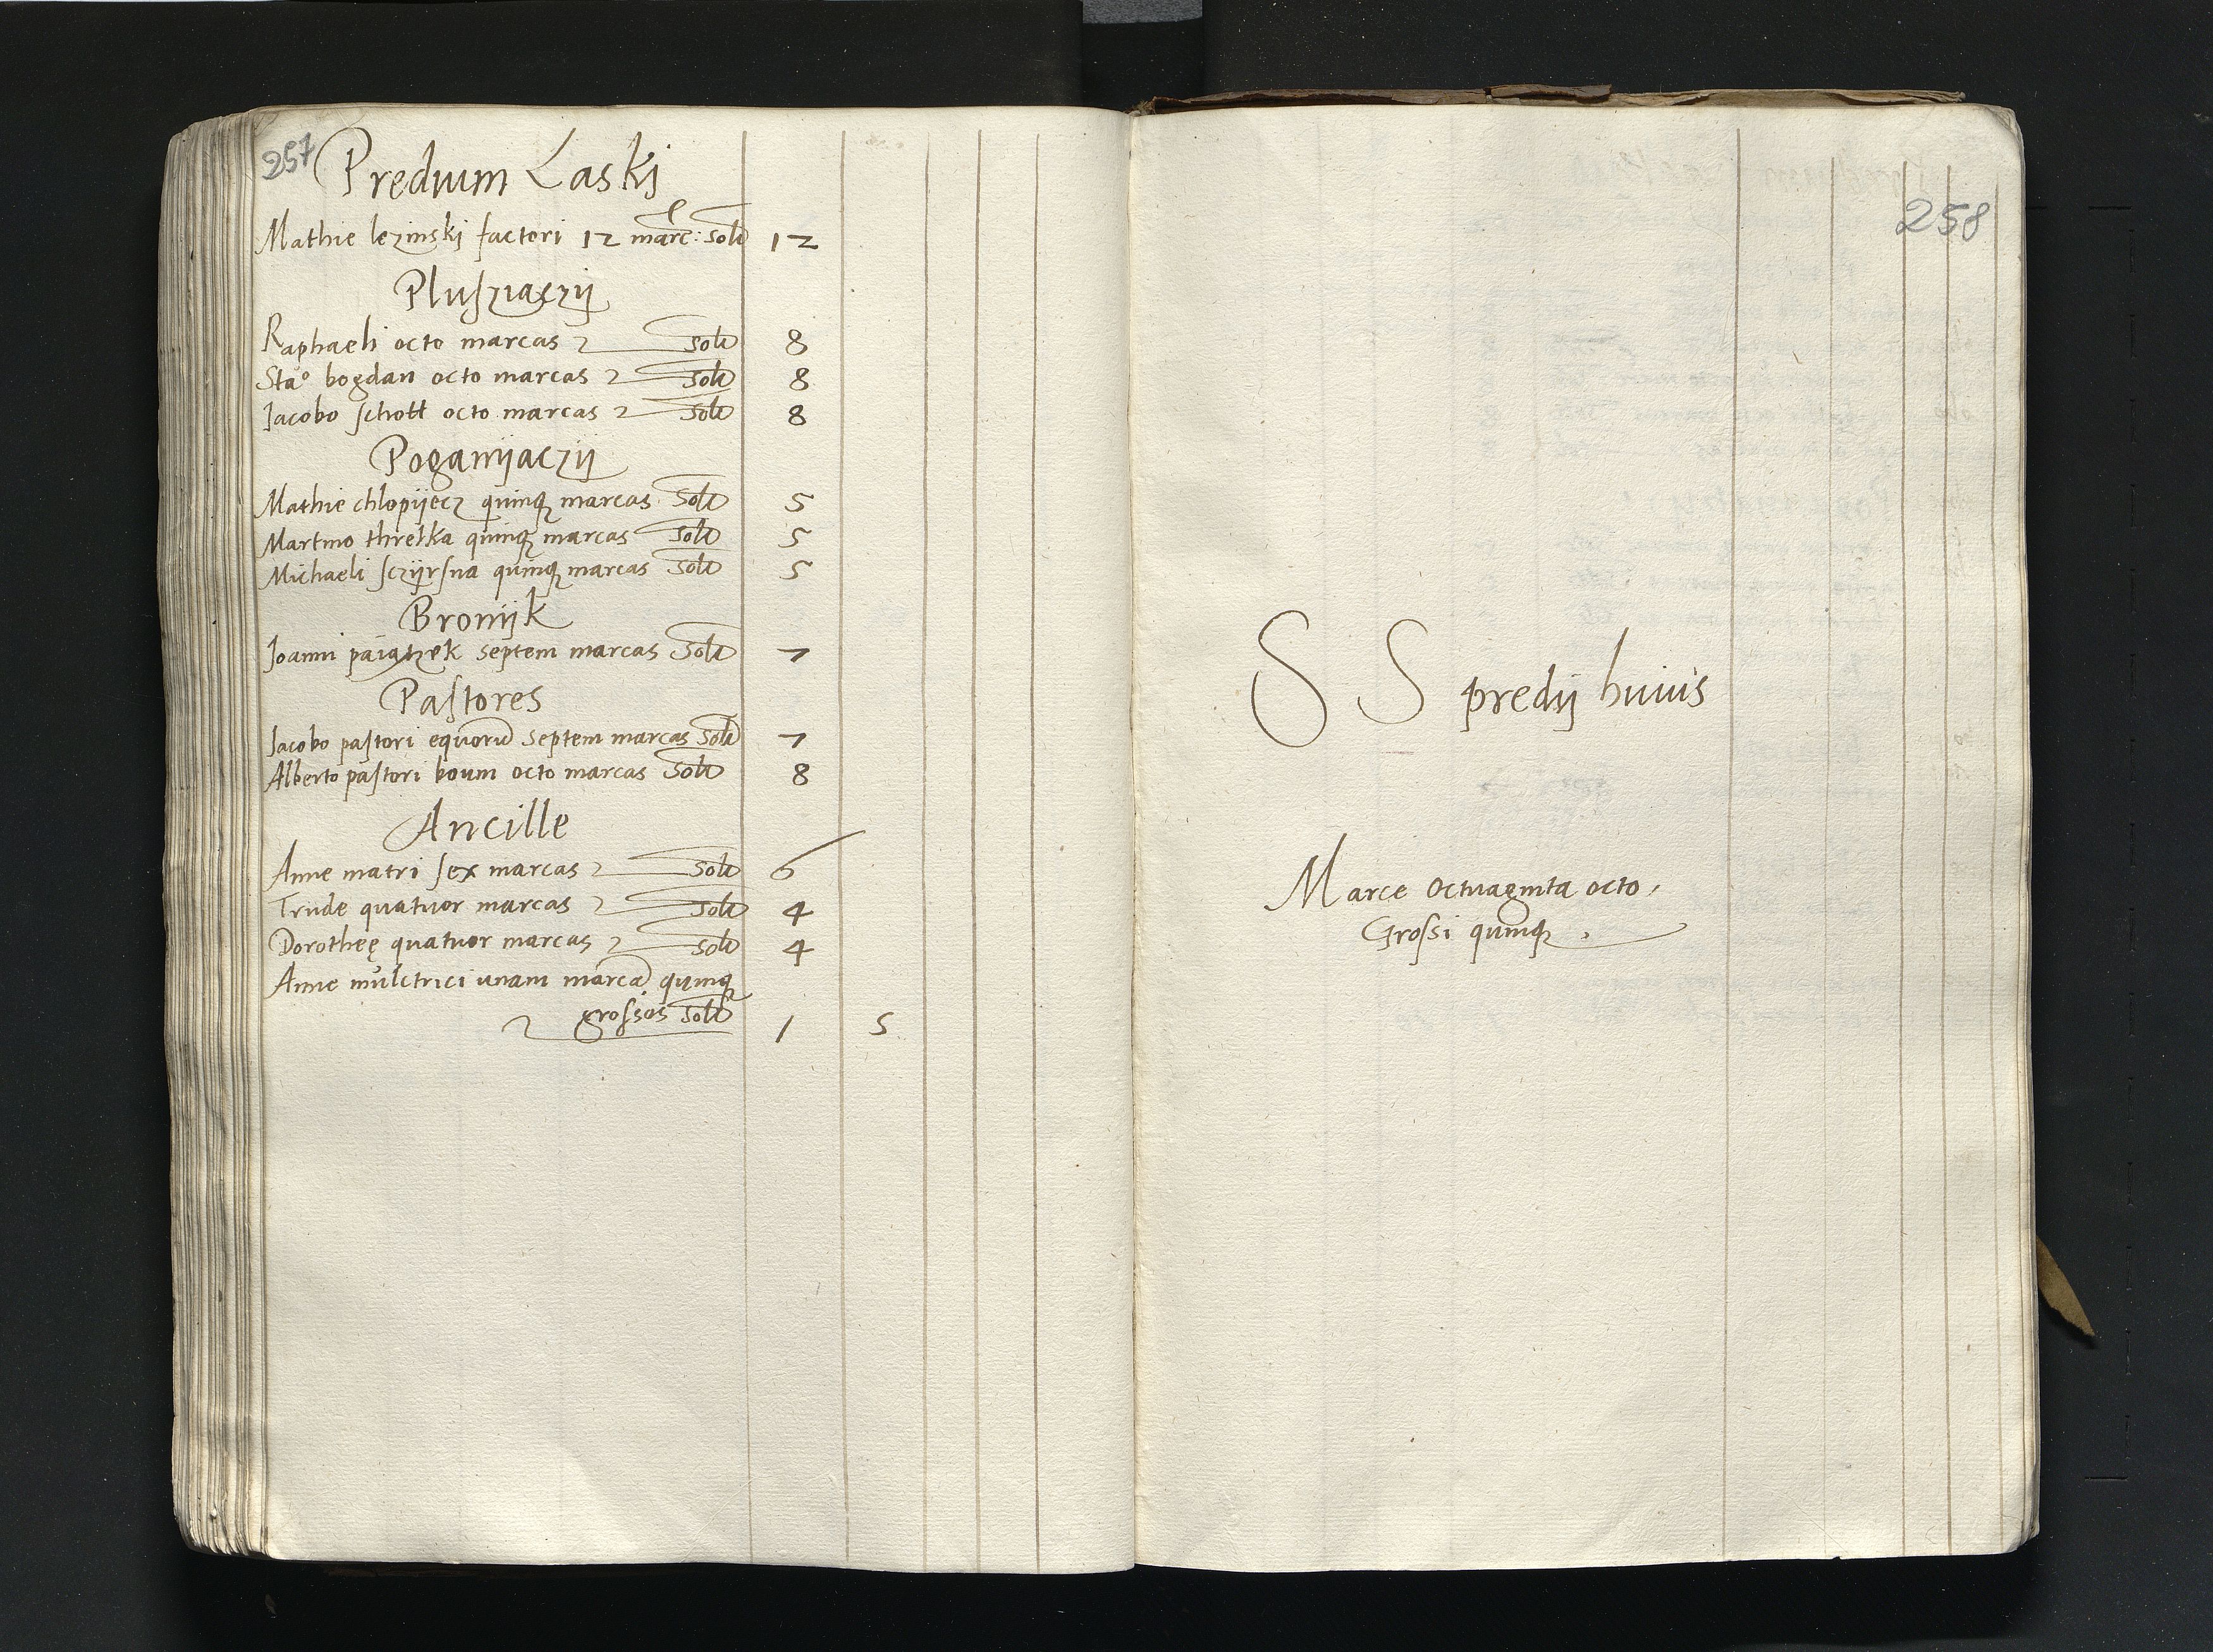 257
Predium Laskj
Mathie lezinskj factori 12 marc: solů 12
Pluſziaczij
Raphaeli octo marcas solů 8
Staº bogdan octo marcas solů 8
Jacobo ſchott octo marcas solů 8
Poganijaczij
Mathie chlopijecz quinq marcas solů 5
Martino thretka quinq marcas solů 5
Michaeli ſczijrſna quinq marcas solů 5
Bronijk
Joanni septem marcas solů 7
Paſtores
Jacobo paſtori equorū septem marcas solů 7
Alberto paſtori boum octo marcas solů 8
Ancille
Anne matri ſex marcas solů 6
Trude quatuor marcas solů 4
Dorotheę quatuor marcas solů 4
Anne mulctrici unam marcā quinq
groſsos solů 1 5
258
S S predij huius
Marce Octuaginta octo,
Groſsi quinq.